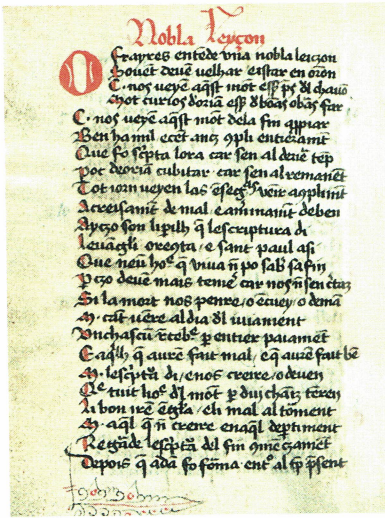 Nobla Leyçon
O frayres entende vna nobla leiczon
Souēt deuē velhar e istar en orōn
C. nos veyē aqst mōt esser ps dl chauō
Mot curios doriā esser d bōas obās far
C. nos veyē aqst mōt de la fin appiar
Ben ha mil e cēt ancz cpli entierāmt
Que fo scpta lora car sen al derier tēp
Poc deoriā cubitar car sen al remanēt
Tot iorn veyen las eseg̃s venir a cpliment
Acreisamēt de mal e amermamēt de ben
Ayczo son li pilh q̄ lescriptura di
Leuāgli o reconta e sant paul asi
Que neū hoē q̄ viua n̄ po sab̄ sa fin
P czo deuē mais temē car nos n̄ sen ctaz
Si la mort nos penre o ēcuey o deman
M. cāt vēre al dia dl iuiament
Vnchascun rceb p entier paiament
E aqlh q̄ aurē fait mal e q̄ aurē fait bē
M. lescptā di e nos creire o deven
Q̄ tuit hoē dl mōt p dui chamīz tēren
Li bon irē en glā e li mal al torment
M. aql q̄ n̄ creire en aql deptiment
Regarde lescptā del fin cmēczament
Depois q̄ adā fo formā entro al tp p̄sent